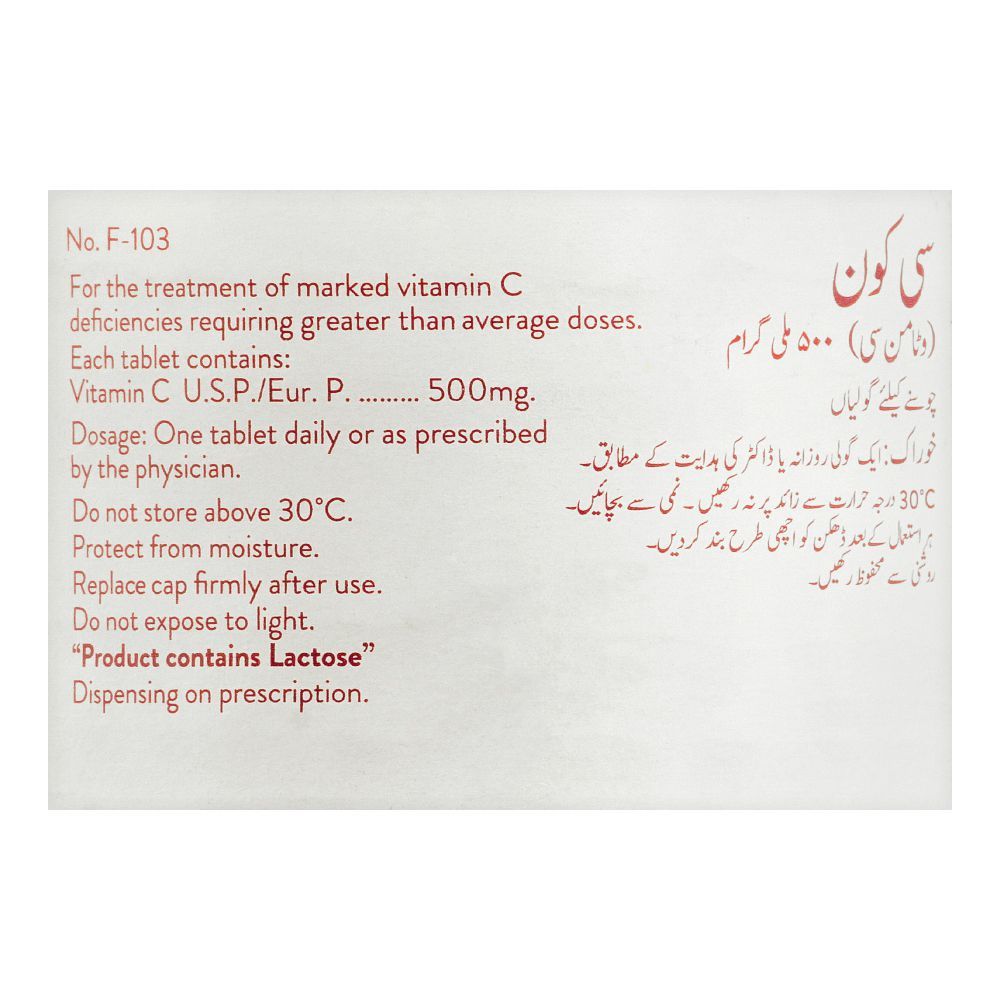 No. F-103
For the treatment of marked vitamin C
deficiencies requiring greater than average doses.
Each tablet contains:
Vitamin C U.S.P./Eur. P. ......... 500mg.
Dosage: One tablet daily or as prescribed
by the physician.
Do not store above 30°C.
Protect from moisture.
Replace cap firmly after use.
Do not expose to light.
“Product contains Lactose”
Dispensing on prescription.
سی کون
(وٹامن سی) ۵۰۰ ملی گرام
چوسنے کیلئے گولیاں
خوراک: ایک گولی روزانہ یا ڈاکٹر کی ہدایت کے مطابق۔
30°C درجہ حرارت سے زائد پر نہ رکھیں۔ نمی سے بچائیں۔
ہر استعمال کے بعد ڈھکن کو اچھی طرح بند کردیں۔
روشنی سے محفوظ رکھیں۔